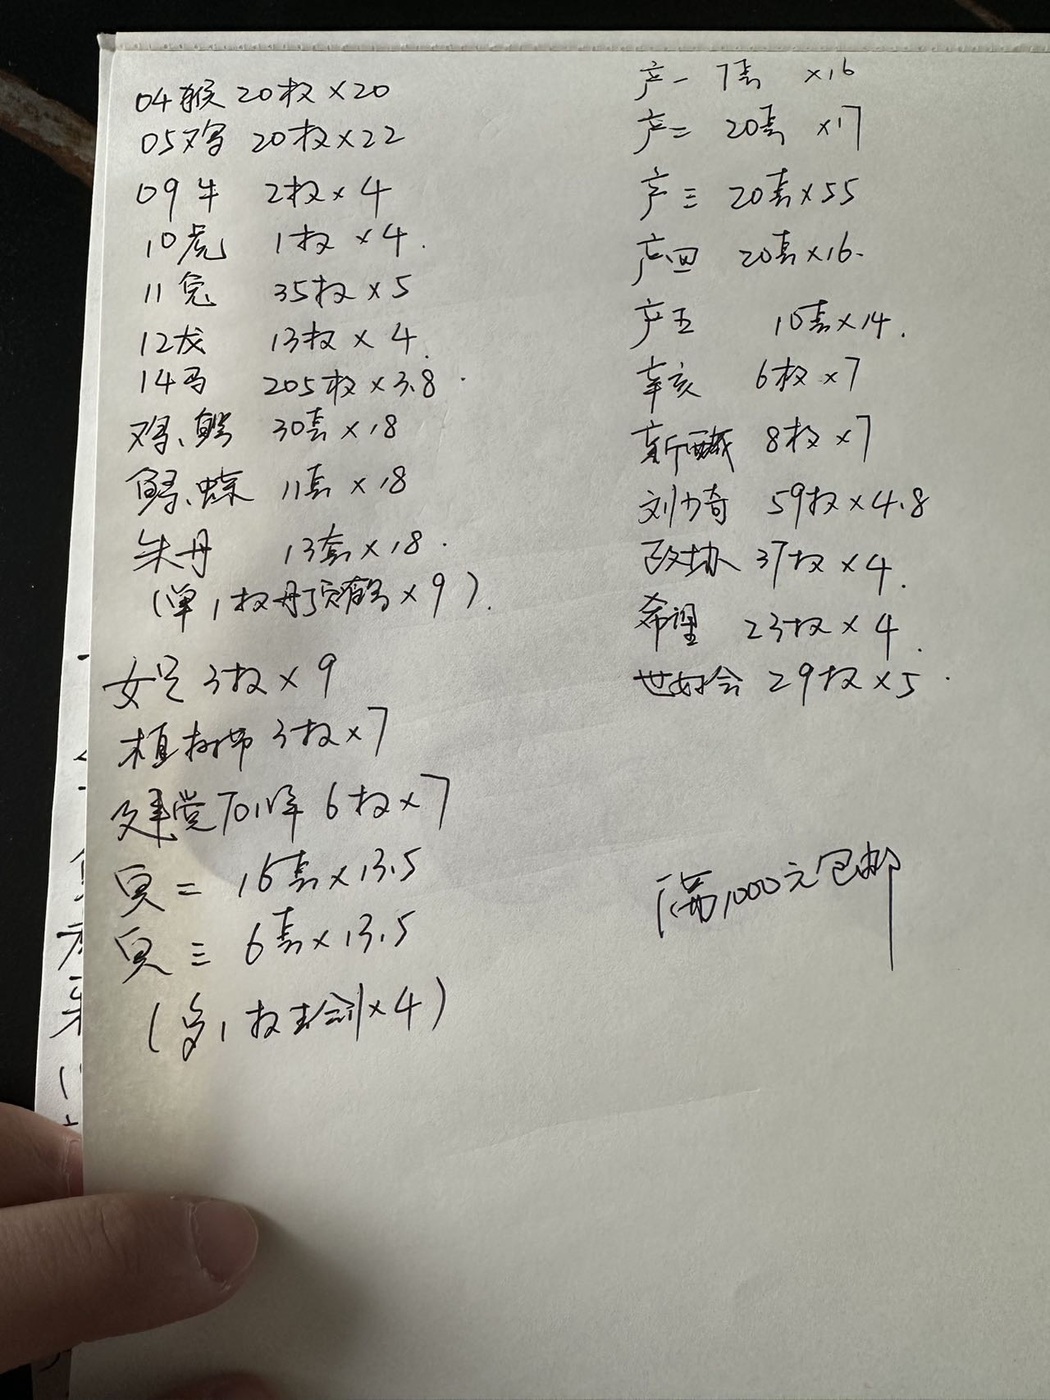 04猴 20枚×20
05鸡 20枚×22
09牛 2枚×4
10虎 1枚×4.
11兔 35枚×5
12龙 13枚×4.
14马 205枚×3.8.
鸡、鲟 30套×18
鳄、蝶 11套×18
朱丹 13套×18.
(单1枚丹顶鹤×9).
女足 3枚×9
植树节 3枚×7
建党70周年 6枚×7
奥二 16套×13.5
奥三 6套×13.5
(多1枚击剑×4)
产一 7套 ×16
产二 20套 ×17
产三 20套×55
产四 20套×16.
产五 10套×14.
辛亥 6枚×7
新疆 8枚×7
刘少奇 59枚×4.8
政协 37枚×4.
希望 23枚×4.
世妇会 29枚×5.
满1000元包邮